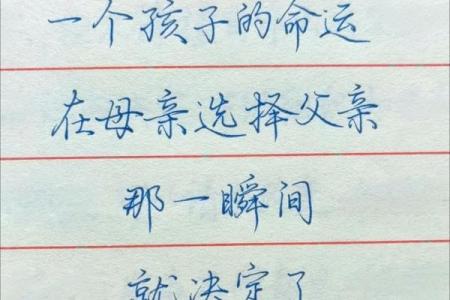 一个孩子的命运
在母亲选择父亲
那一瞬间
就决定了